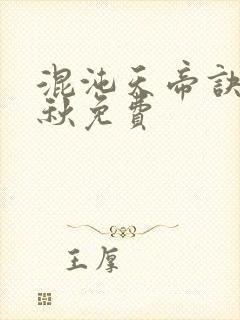 混沌天帝訣
秋免費
王厚